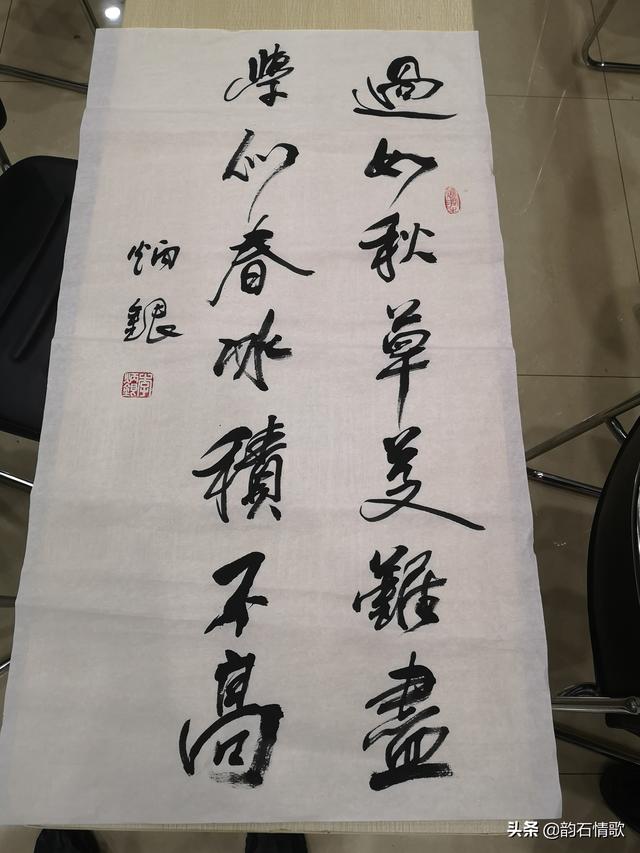 過如秋草芟難盡
學似春冰積不高
炳銀
李炳銀
头条 @韵石情歌